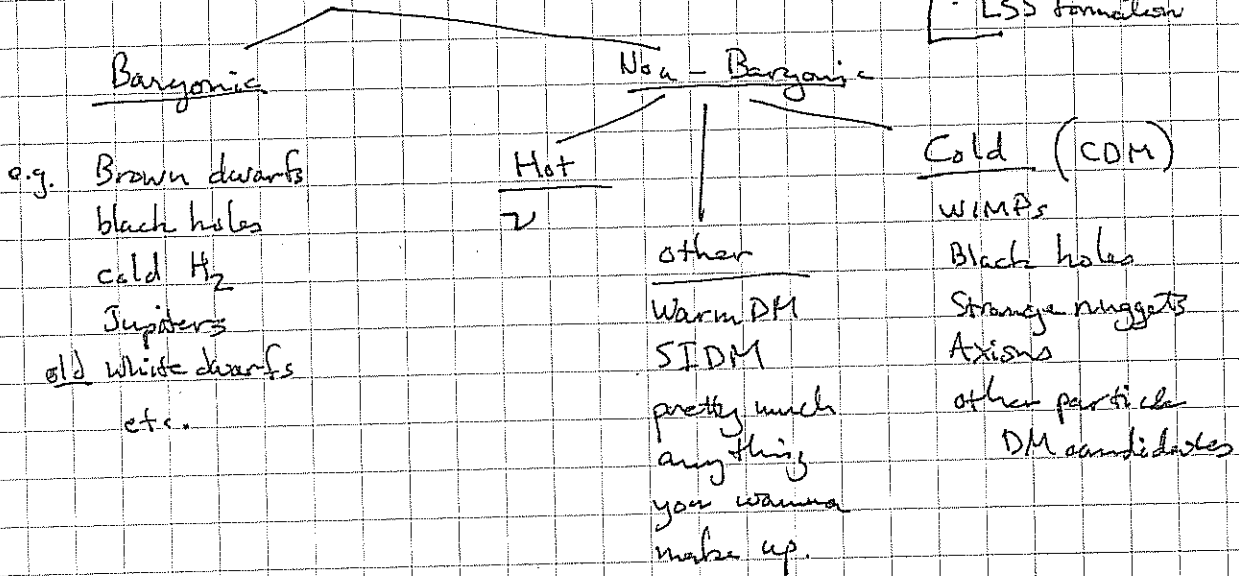 · LSS formation
Baryonic
Non - Baryonic
e.g. Brown dwarfs
black holes
cold H₂
Jupiters
old white dwarfs
etc.
Hot
ν
other
Warm DM
SIDM
pretty much
anything
you wanna
make up.
Cold (CDM)
WIMPs
Black holes
Strange nuggets
Axions
other particle
DM candidates